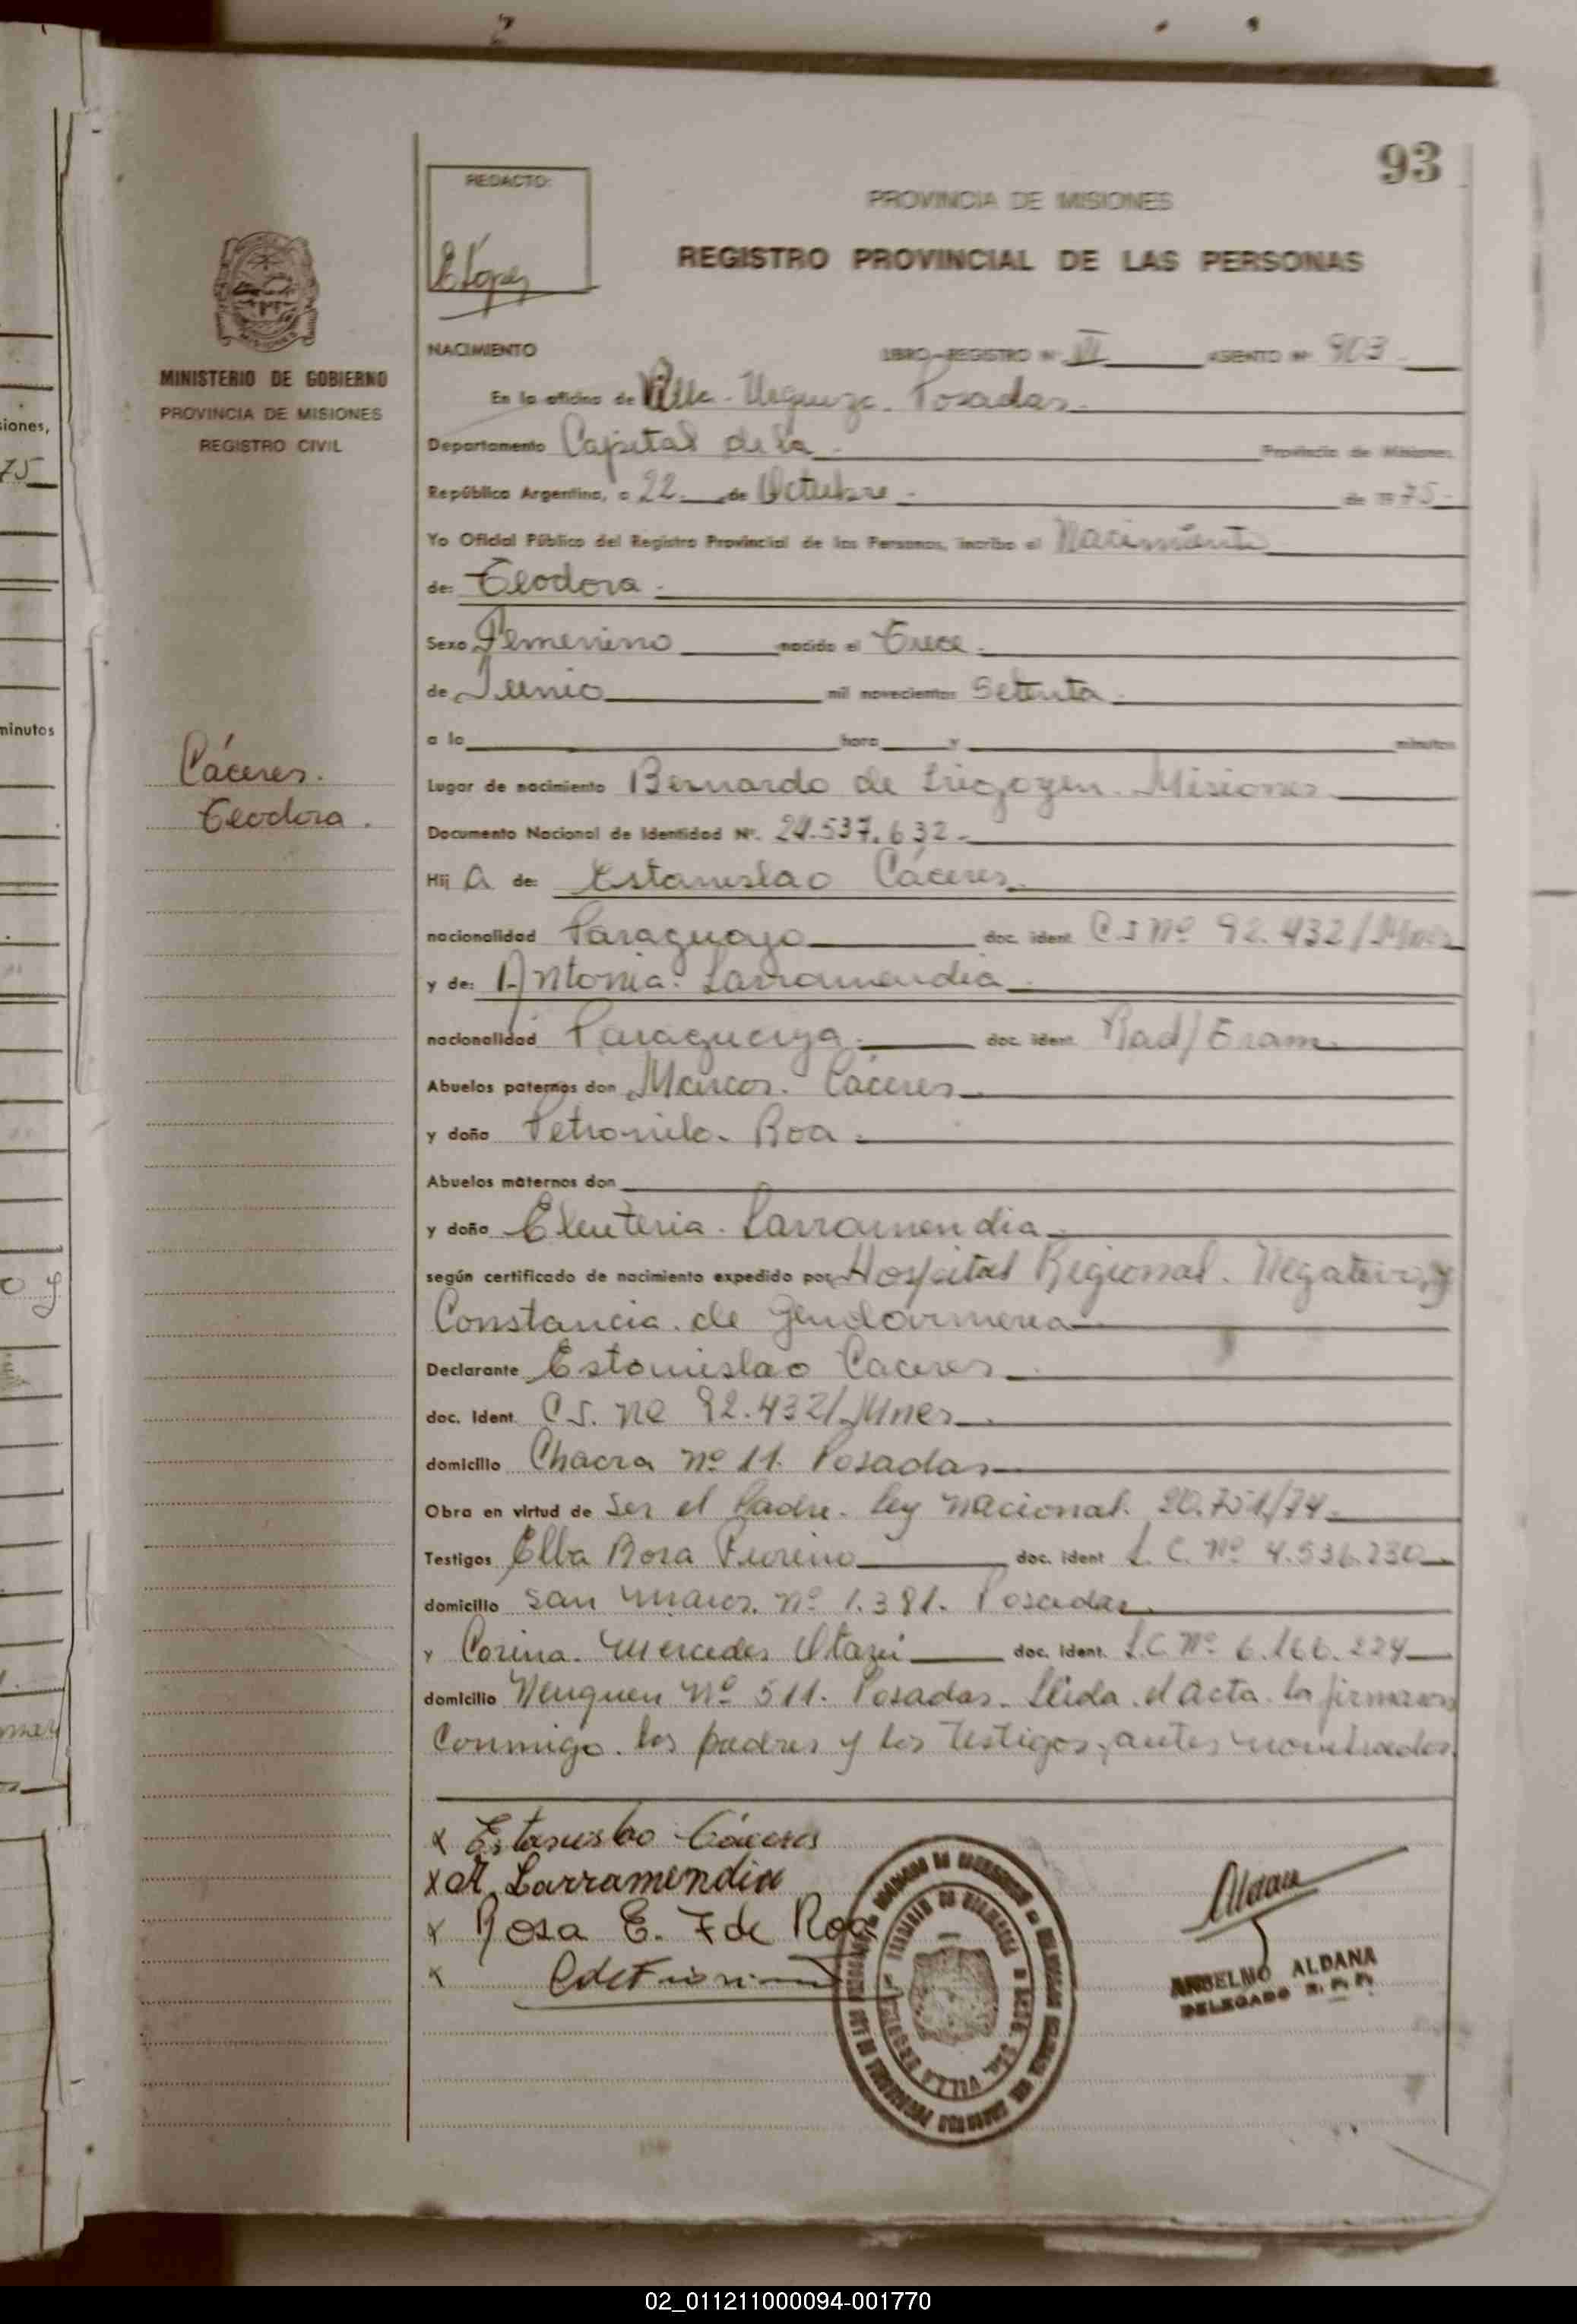 93
REDACTO:
PROVINCIA DE MISIONES
REGISTRO PROVINCIAL DE LAS PERSONAS
MINISTERIO DE GOBIERNO
PROVINCIA DE MISIONES
REGISTRO CIVIL
Cáceres.
Teodora.
NACIMIENTO LIBRO-REGISTRO Nº VI ASIENTO Nº 903
En la oficina de Villa Urquiza. Posadas.
Departamento Capital de la Provincia de Misiones
República Argentina, a 22 de Octubre de 1975
Yo Oficial Público del Registro Provincial de las Personas, inscribo el Nacimiento
de: Teodora
Sexo Femenino nacido el Trece
de Junio mil novecientos Setenta
a la hora y minutos
Lugar de nacimiento Bernardo de Irigoyen. Misiones
Documento Nacional de Identidad Nº. 24.537.632
Hij a de: Estanislao Cáceres
nacionalidad Paraguayo doc. ident. C.I Nº 92.432/Mnes
y de: Antonia Larramendia
nacionalidad Paraguaya doc. ident.
Abuelos paternos don Marcos Cáceres
y doña Petronila Roa
Abuelos maternos don
y doña Eleuteria Larramendia
según certificado de nacimiento expedido por Hospital Regional. Negativo y
Constancia de Gendarmeria
Declarante Estanislao Caceres
doc. Ident. C.I. Nº 92.432/Mnes
domicilio Chacra nº 11. Posadas
Obra en virtud de ser el Padre. ley nacional. 20.751/74
Testigos Elba Rosa doc. ident L.C. Nº 4.536.230
domicilio San Marcos. nº 1.381. Posadas
y Corina Mercedes doc. Ident. L.C Nº 6.166.224
domicilio Neuquen Nº 511. Posadas. Leida el Acta la firmaron
Conmigo los padres y los testigos antes nombrados
x Estanislao Cáceres
x A. Larramendia
x Rosa E. F de Roa
x
ANSELMO ALDANA
DELEGADO R. P. P.
siones,
75
minutos
02_011211000094-001770